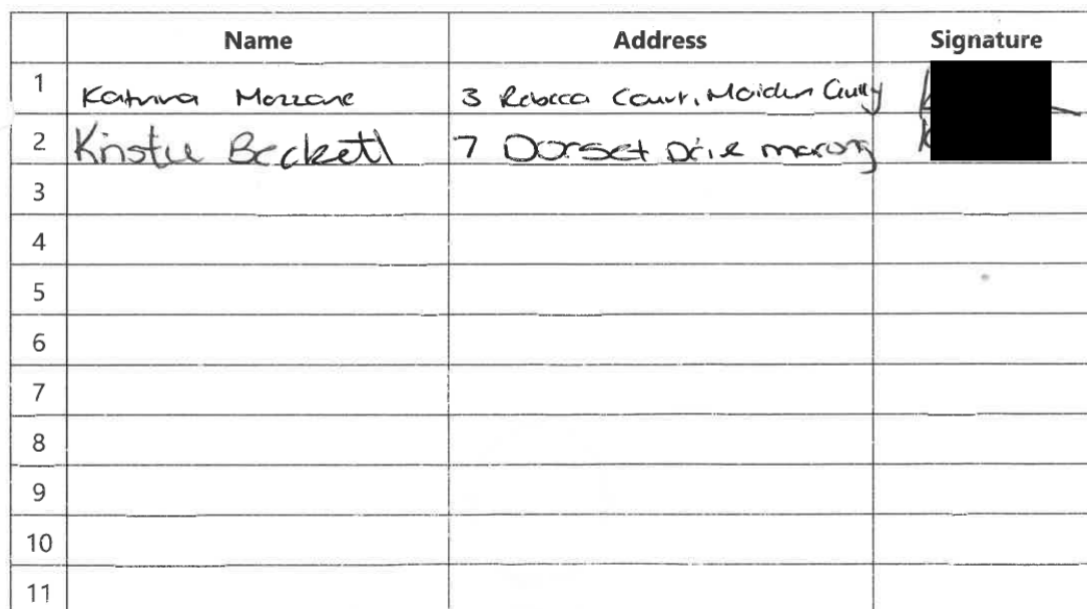 Name Address Signature
1 Katrina Mozzone 3 Rebecca Court, Maiden Gully
2 Kristie Beckett 7 Dorset Drive marong
3
4
5
6
7
8
9
10
11